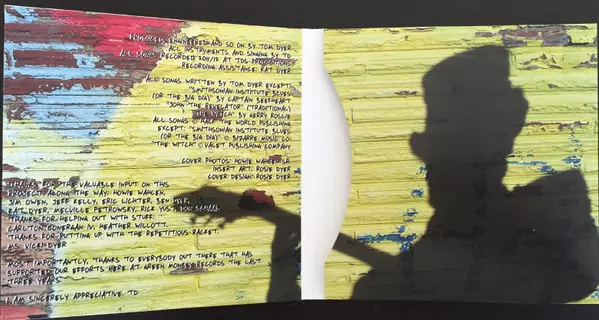 PRODUCED, ENGINEERED AND SO ON BY TOM DYER
ALL INSTRUMENTS AND SINGING BY TD
ALL SONGS RECORDED 2011/12 AT TDS PRODUCTIONS
RECORDING ASSISTANCE: KAT DYER
ALL SONGS WRITTEN BY TOM DYER EXCEPT:
"SMITHSONIAN INSTITUTE BLUES
(OR THE BIG DIG)" BY CAPTAIN BEEFHEART,
"JOHN THE REVELATOR" (TRADITIONAL)
"THE WITCH" BY GERRY ROSLIE
ALL SONGS © HALF THE WORLD PUBLISHING
EXCEPT: "SMITHSONIAN INSTITUTE BLUES
(OR THE BIG DIG)" © BIZARRE MUSIC CO.
"THE WITCH" © VALET PUBLISHING COMPANY
COVER PHOTOS: HOWIE WAHLEN SR
INSERT ART: ROSIE DYER
COVER DESIGN: ROSIE DYER
THANKS FOR THE VALUABLE INPUT ON THIS
PROJECT ALONG THE WAY: HOWIE WAHLEN,
JIM OWEN, JEFF KELLY, ERIC LICHTER, BEN DYER,
KAT DYER, MELVILLE PETROWSKY, RICK YUST,
THANKS FOR HELPING OUT WITH STUFF:
CARLTON DONERGAN IV, HEATHER WILLOTT.
THANKS FOR PUTTING UP WITH THE REPETITIOUS RACKET:
MS. VICKI DYER
MOST IMPORTANTLY, THANKS TO EVERYBODY OUT THERE THAT HAS
SUPPORTED OUR EFFORTS HERE AT GREEN MONKEY RECORDS THE LAST
THREE YEARS.
I AM SINCERELY APPRECIATIVE. TD